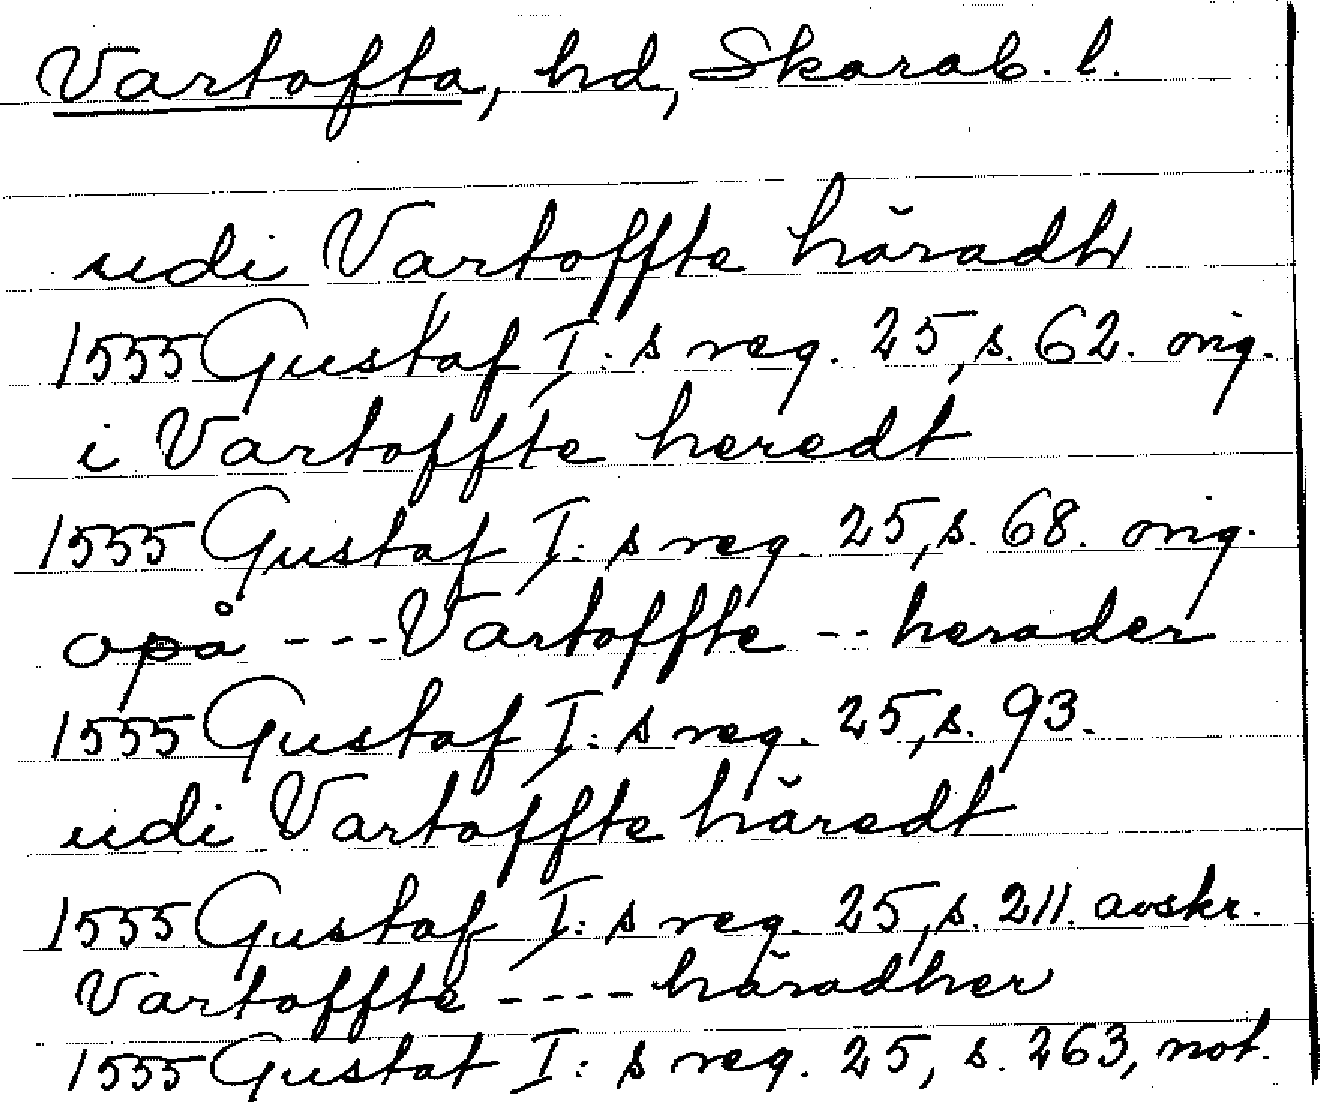 Vartofta, hd, Skarab. l.
udi Vartoffte häradh
1555 Gustaf I:s reg. 25, s. 62. orig.
i Vartoffte heredt
1555 Gustaf I:s reg. 25, s. 68. orig.
opå --- Vartoffte -- herader
1555 Gustaf I:s reg. 25, s. 93.
udi Vartoffte häredt
1555 Gustaf I:s reg. 25, s. 211. avskr.
Vartoffte ---- häradher
1555 Gustaf I:s reg. 25, s. 263, not.